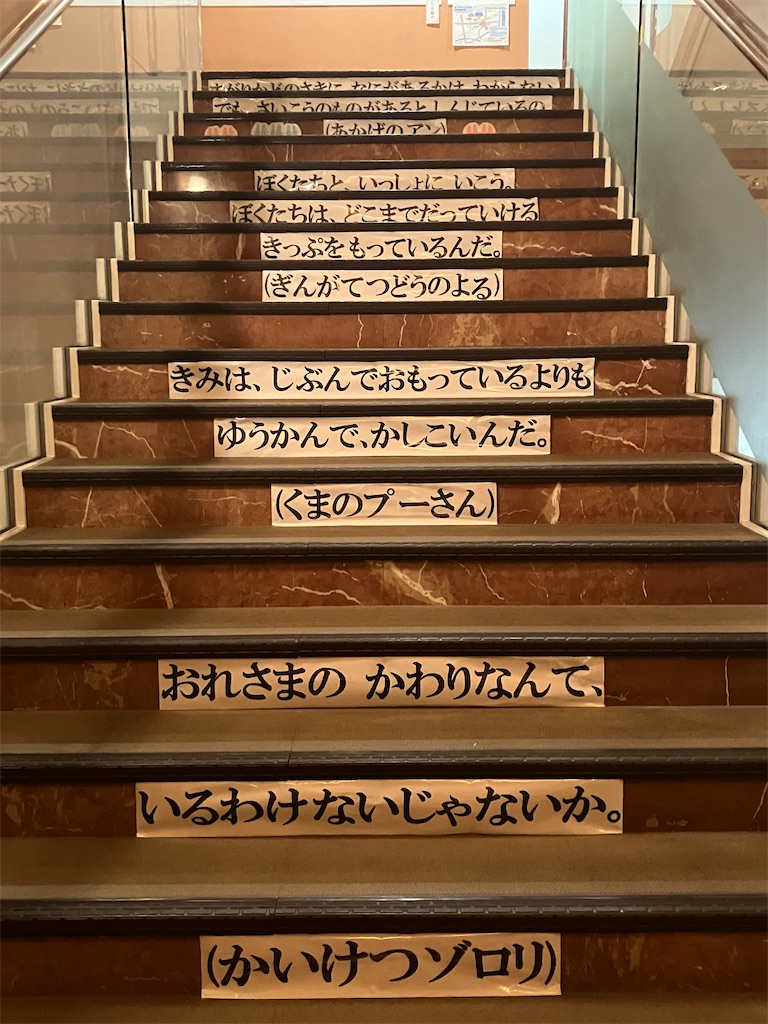 まがりかどのさきに、なにがあるかは、わからない。
でも、さいこうのものがあるとしんじているの。
(あかげのアン)
ぼくたちと、いっしょに いこう。
ぼくたちは、どこまでだっていける
きっぷをもっているんだ。
(ぎんがてつどうのよる)
きみは、じぶんでおもっているよりも
ゆうかんで、かしこいんだ。
(くまのプーさん)
おれさまの かわりなんて、
いるわけないじゃないか。
(かいけつゾロリ)